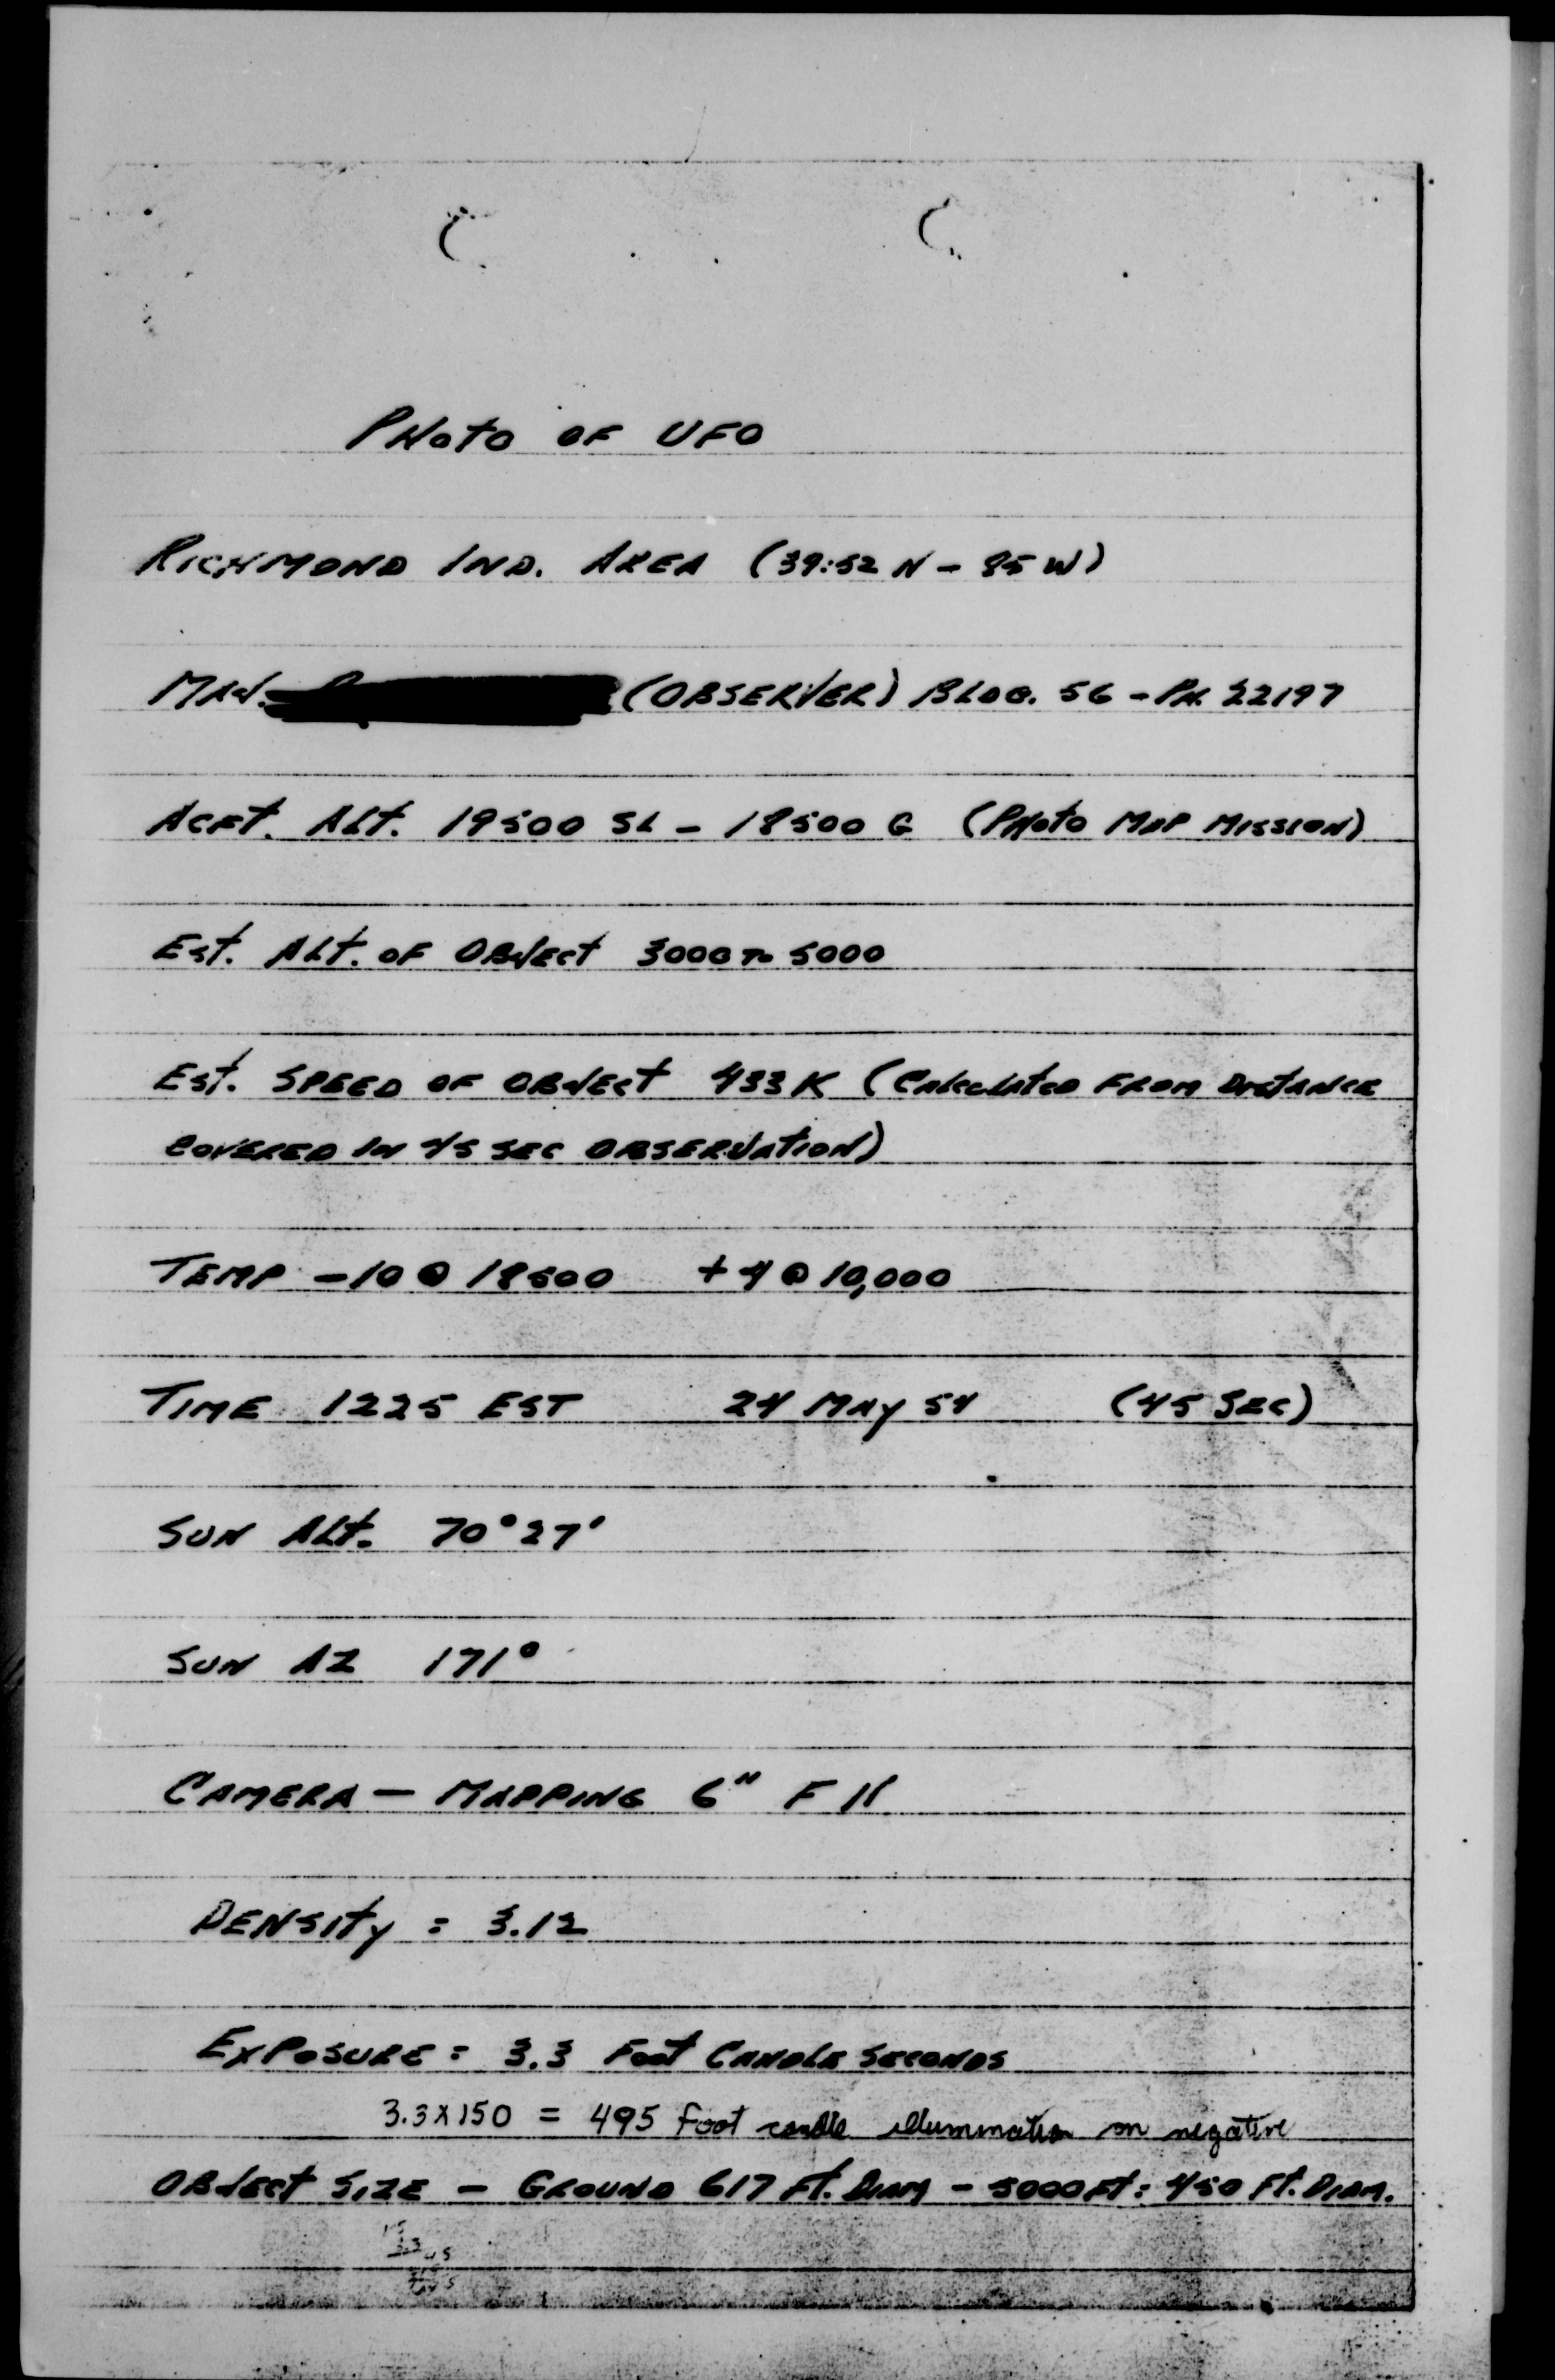 PHOTO OF UFO
RICHMOND IND. AREA (39:52 N - 85 W)
MAJ. (OBSERVER) BLDG. 56 - PH. 22197
ACFT. ALT. 19500 SL - 18500 G (PHOTO MAP MISSION)
EST. ALT. OF OBJECT 3000 TO 5000
EST. SPEED OF OBJECT 433 K (CALCULATED FROM DISTANCE
COVERED IN 45 SEC OBSERVATION)
TEMP -10 @ 18500 +4 @ 10,000
TIME 1225 EST 24 MAY 54 (45 SEC)
SUN ALT. 70°27'
SUN AZ 171°
CAMERA - MAPPING 6" F 11
DENSITY = 3.12
EXPOSURE = 3.3 FOOT CANDLE SECONDS
3.3 X 150 = 495 foot candle illumination on negative
OBJECT SIZE - GROUND 617 FT. DIAM - 5000 FT = 450 FT. DIAM.